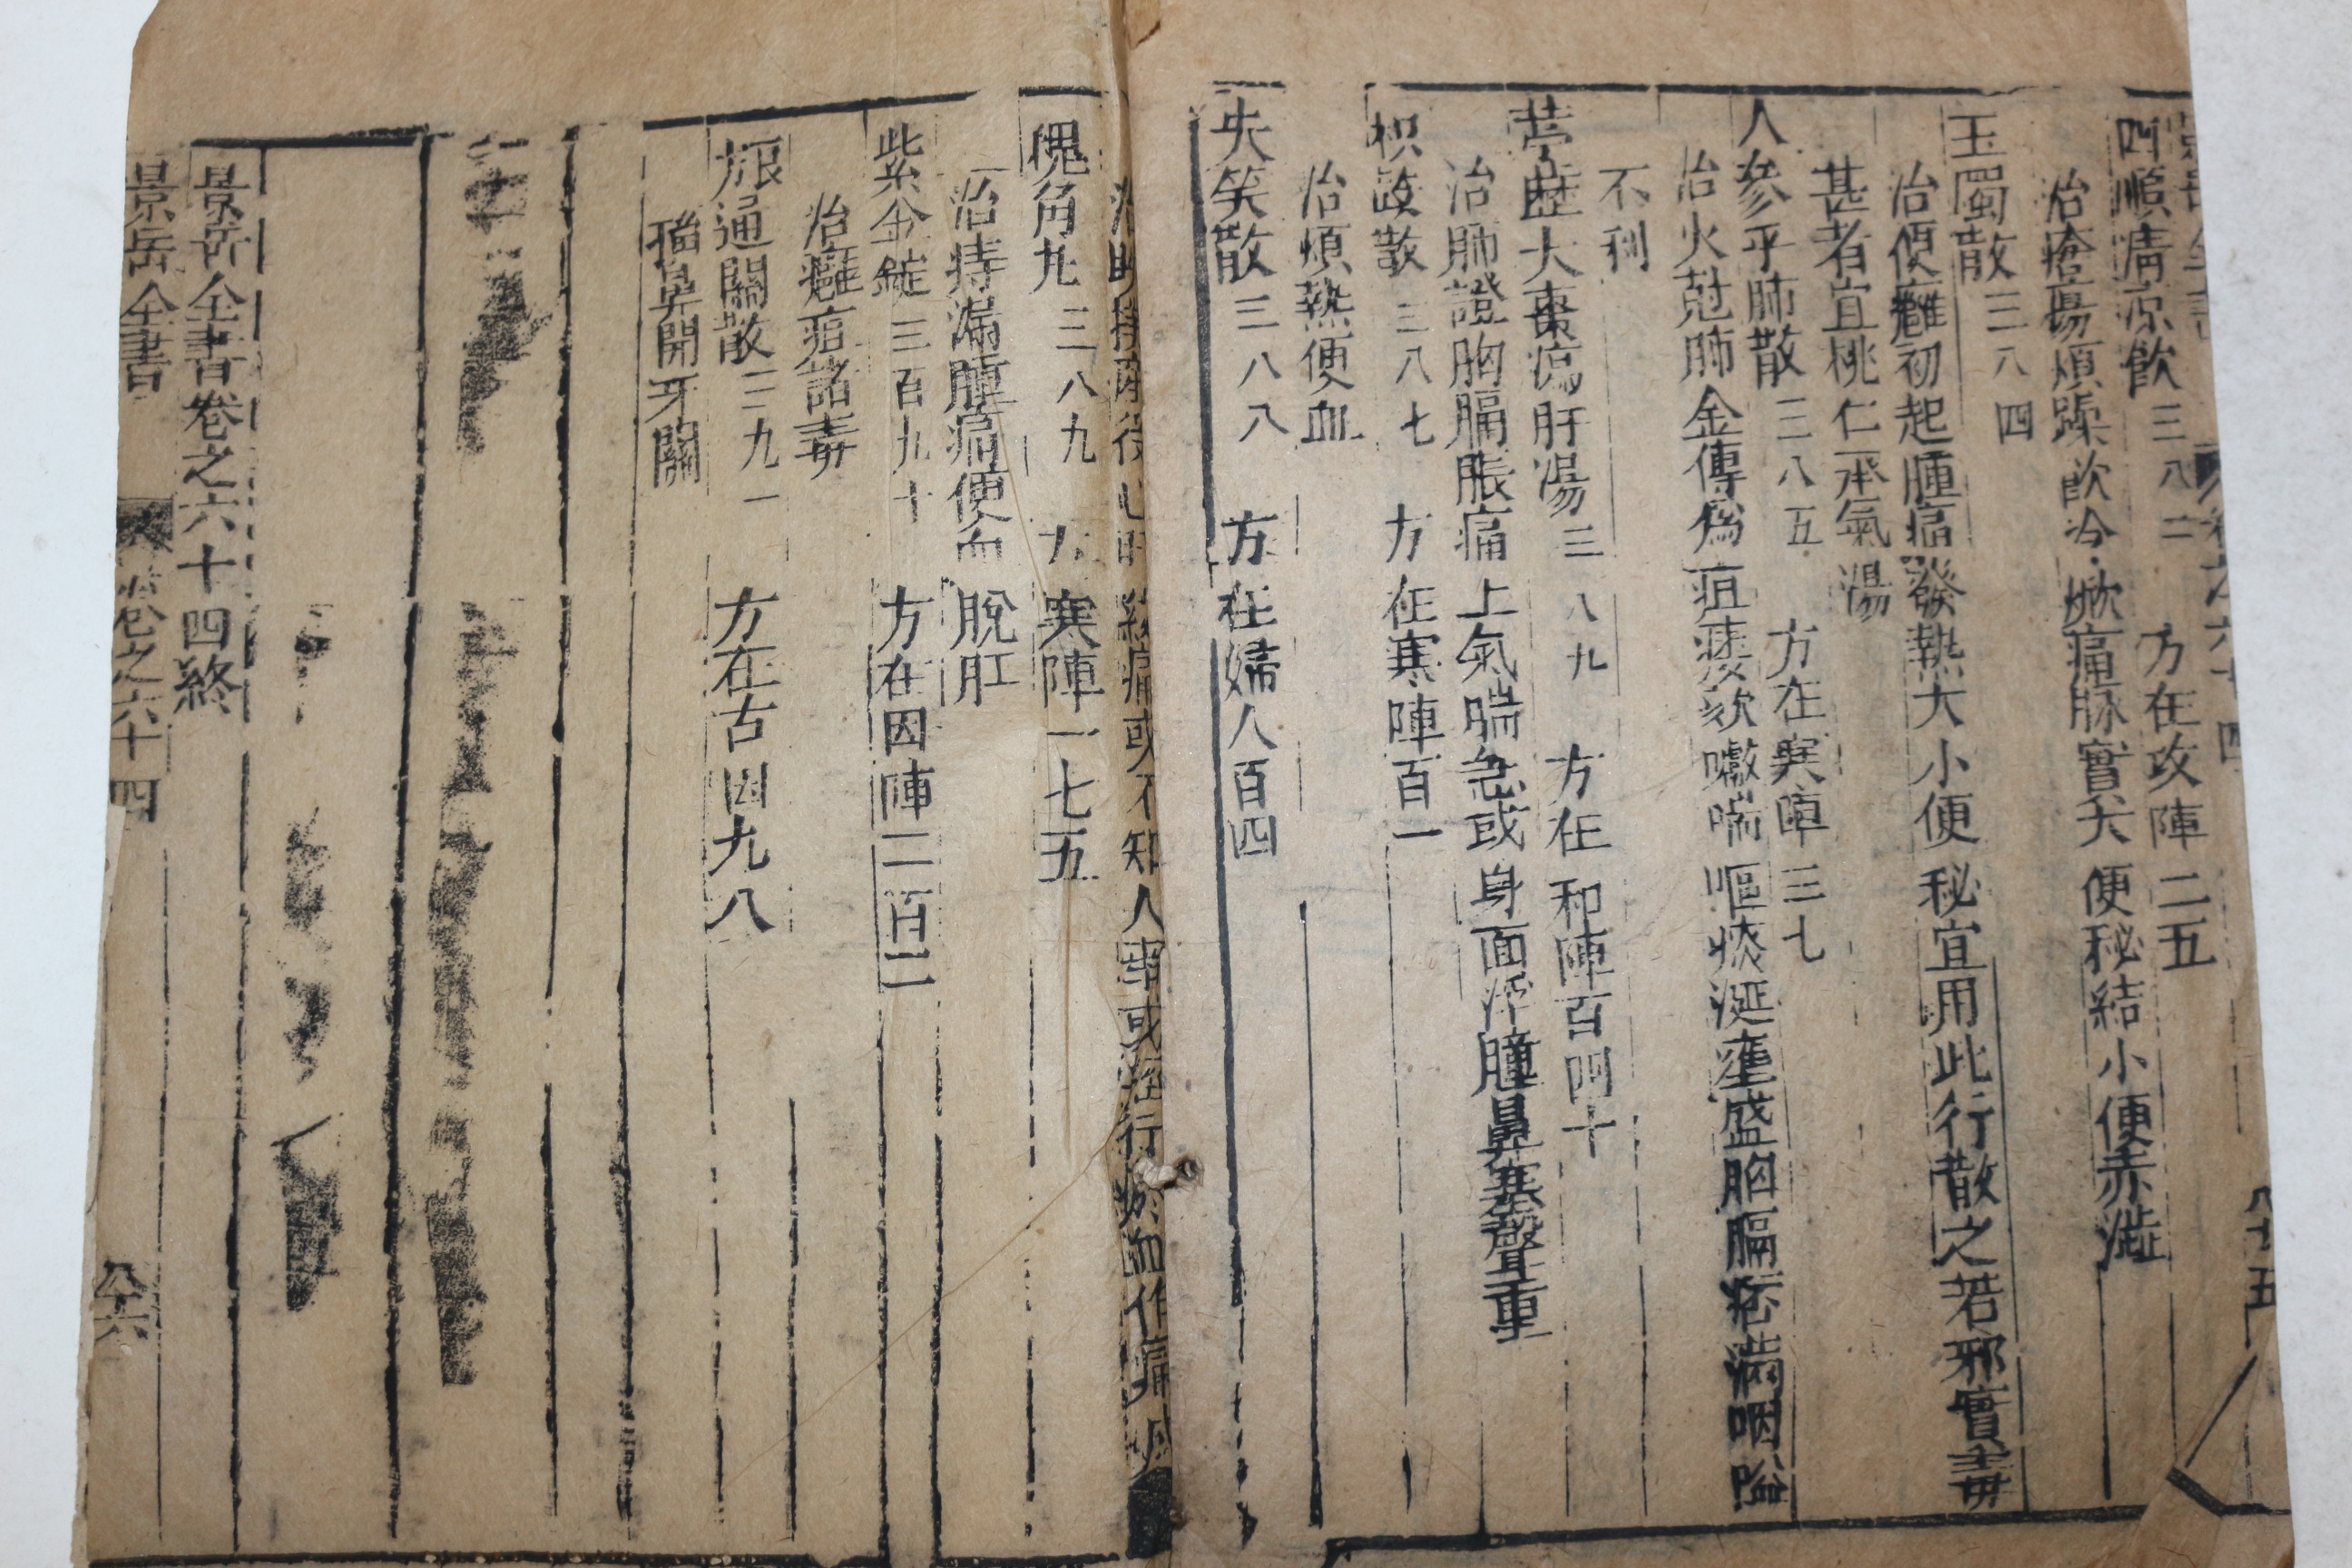 四順清凉飲 三八二 方在攻陣二五
治瘡瘍煩躁飲冷㷻痛脉實大便秘結小便赤澁
玉蠋散 三八四
治便癰初起腫痛發熱大小便秘宜用此行散之若邪實毒
甚者宜桃仁承氣湯
人參平肺散 三八五 方在寒陣三七
治火尅肺金傳爲疽痿欬嗽喘嘔痰涎壅盛胸膈痞滿咽嗌
不利
葶藶大棗瀉肝湯 三八九 方在和陣百四十
治肺證胸膈脹痛上氣喘急或身面浮腫鼻塞聲重
枳殼散 三八七 方在寒陣百一
治煩熱便血
失笑散 三八八 方在婦人百四
後心 絞痛或不知人事或經行瘀血作痛
槐角丸 三八九 方寒陣一七五
治痔漏腫痛便血脫肛
紫金錠 三百九十 方在因陣二百二
治癰疽諸毒
通關散 三九一 方在古因九八
搐鼻開牙關
景岳全書卷之六十四終
景岳全書 卷之六十四 八六